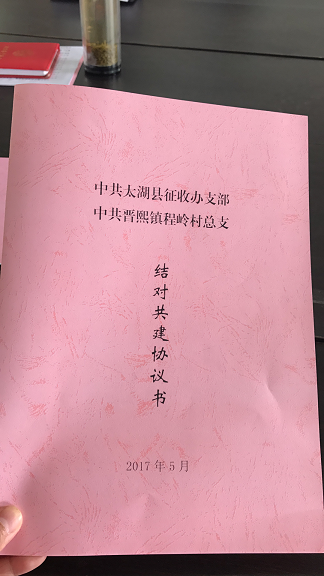 中共太湖县征收办支部
中共晋熙镇程岭村总支
结对共建协议书
2017年5月